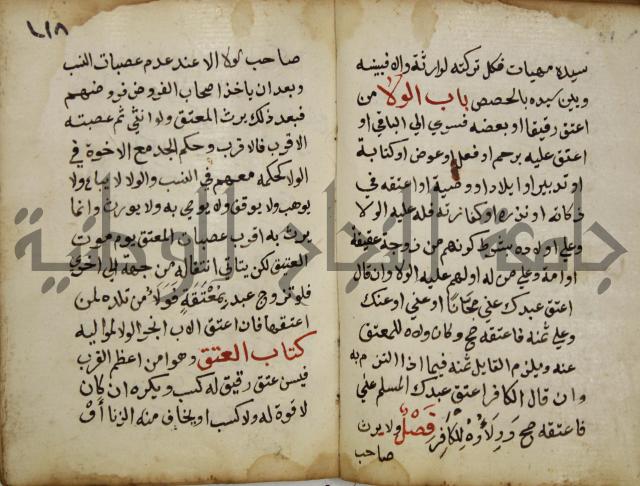 سيده مهيات فكل تركته لوارثة والا فبينه
وبين سيده بالحصص باب الولا من
اعتق رقيقا او بعضه فسري الى الباقي او
اعتق عليه برحم او فعل او عوض او كتابة
او تدبير او ايلاد او وصية او اعتقه في
زكاته او نذره او كفارته فله عليه الولا
وعلى اولاده بشرط كونهم من زوجة عتيقة
او امة وعلى من له او لهم عليه الولا وان قال
اعتق عبدك عني مجانا او عني او عنك
وعلي ثمنه فاعتقه صح وكان ولاه للمعتق
عنه ويلزم القايل ثمنه فيما اذا التزم به
وان قال الكافر اعتق عبدك المسلم عني
فاعتقه صح وولاؤه للكافر فصل ولا يرث
صاحب
١١٨
صاحب الولا الا عند عدم عصبات النسب
وبعد ان ياخذ اصحاب الفروض فروضهم
فبعد ذلك يرث المعتق ولو انثى ثم عصبته
الاقرب فالاقرب وحكم الجد مع الاخوة في
الولا كحكمه معهم في النسب والولا لا يباع ولا
يوهب ولا يوقف ولا يوصى به ولا يورث وانما
يرث به اقرب عصبات المعتق يوم موت
العتيق لكن يتاتى انتقاله من جهة الى اخرى
فلو تزوج عبد بمعتقة فولا من تلده لمن
اعتقها فان اعتق الاب انجر الولا لمواليه
كتاب العتق وهو من اعظم القرب
فيسن عتق رقيق له كسب ويكره ان كان
لا قوة له ولا كسب او يخاف منه الزنا او
جامعة النجاح الوطنية